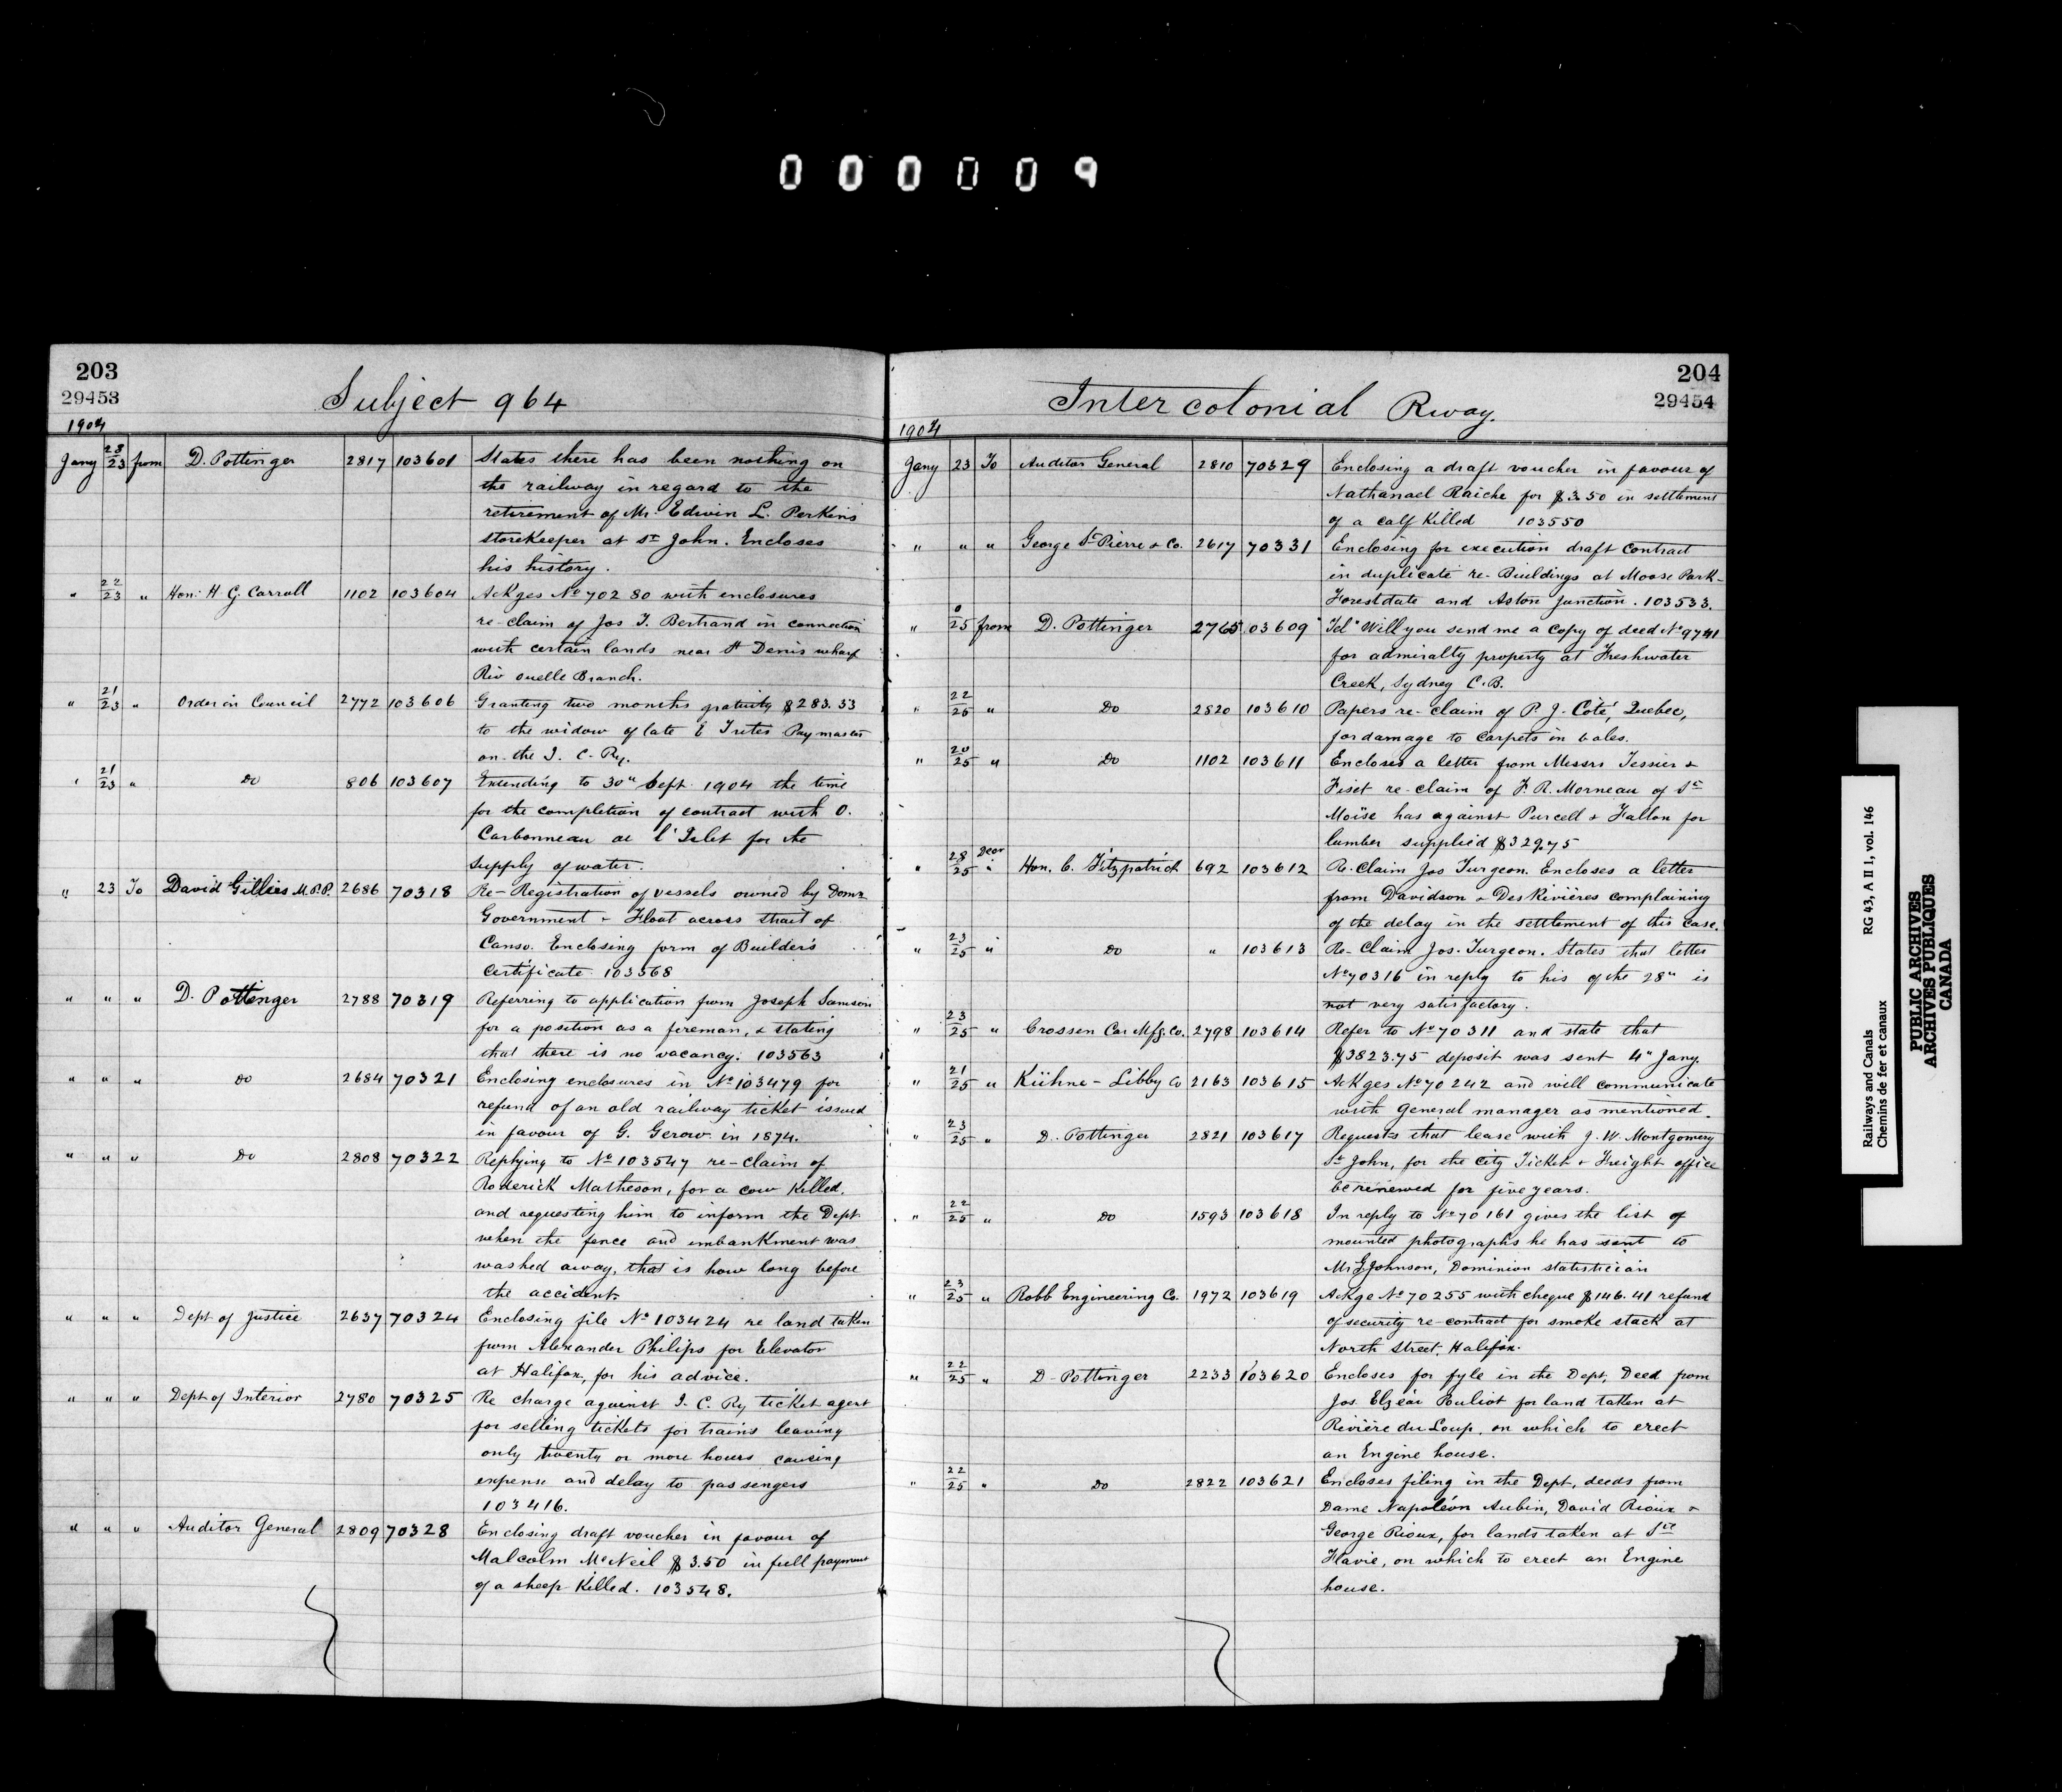 000009
203
29453
Subject 964
1904
Jany 23/23 from D. Pottinger 2817 103601 States there has been nothing on
the railway in regard to the
retirement of Mr. Edwin L. Perkins
storekeeper at St John. Encloses
his history.
" 22/23 " Hon: H. G. Carroll 1102 103604 Ackges No 70280 with enclosures
re-claim of Jos T. Bertrand in connection
with certain lands near St Denis wharf
Riv Ouelle Branch.
" 21/23 " Order in Council 2772 103606 Granting two months gratuity $283.33
to the widow of late E Trites Paymaster
on the I. C. Ry.
" 21/23 " Do 806 103607 Extending to 30" Sept. 1904 the time
for the completion of contract with O.
Carbonneau at l'Islet for the
supply of water.
" 23 To David Gillies M.P.P. 2686 70318 Re-Registration of vessels owned by Domn
Government - Float across strait of
Canso. Enclosing form of Builder's
Certificate 103568
" " " D. Pottinger 2788 70319 Referring to application from Joseph Samson
for a position as a fireman, & stating
that there is no vacancy. 103563
" " " Do 2684 70321 Enclosing enclosures in No 103479 for
refund of an old railway ticket issued
in favour of G. Gerow in 1874.
" " " Do 2808 70322 Replying to No 103547 re-claim of
Roderick Matheson, for a cow killed,
and requesting him to inform the Dept
when the fence and embankment was
washed away, that is how long before
the accident.
" " " Dept of Justice 2637 70324 Enclosing file No 103424 re land taken
from Alexander Philips for Elevator
at Halifax, for his advice.
" " " Dept of Interior 2780 70325 Re charge against I. C. Ry ticket agent
for selling tickets for trains leaving
only twenty or more hours causing
expense and delay to passengers
103416.
" " " Auditor General 2809 70328 Enclosing draft voucher in favour of
Malcolm McNeil $3.50 in full payment
of a sheep killed. 103548.
204
29454
Intercolonial Rway.
1904
Jany 23 To Auditor General 2810 70329 Enclosing a draft voucher in favour of
Nathanael Raiche for $3.50 in settlement
of a calf killed 103550
" " " George St Pierre & Co. 2617 70331 Enclosing for execution draft contract
in duplicate re-Buildings at Moose Park-
Forestdate and Aston Junction. 103533.
" 0/25 from D. Pottinger 2765 03609 Tel "Will you send me a copy of deed No 9741
for admiralty property at Freshwater
Creek, Sydney C.B.
" 22/25 " Do 2820 103610 Papers re-claim of P. J. Coté, Quebec,
for damage to carpets in bales.
" 20/25 " Do 1102 103611 Encloses a letter from Messrs Tessier &
Fiset re-claim of F. R. Morneau of St
Moïse has against Purcell & Fallon for
lumber supplied $329.75
" 28 Decr/25 " Hon. C. Fitzpatrick 692 103612 Re-Claim Jos Turgeon. Encloses a letter
from Davidson & DesRivières complaining
of the delay in the settlement of this case.
" 23/25 " Do " 103613 Re-Claim Jos. Turgeon. States that letter
No 70316 in reply to his of the 28" is
not very satisfactory.
" 23/25 " Crossen Car Mfg. Co. 2798 103614 Refer to No 70311 and state that
$3823.75 deposit was sent 4" Jany.
" 21/25 " Kühne-Libby Co 2163 103615 Ackges No 70242 and will communicate
with General manager as mentioned.
" 23/25 " D. Pottinger 2821 103617 Requests that lease with J. W. Montgomery
St John, for the City Ticket & Freight office
be renewed for five years.
" 22/25 " Do 1593 103618 In reply to No 70161 gives the list of
mounted photographs he has sent to
Mr G Johnson, Dominion statistician
" 23/25 " Robb Engineering Co. 1972 103619 Ackge No 70255 with cheque $146.41 refund
of security re-contract for smoke stack at
North Street, Halifax.
" 22/25 " D. Pottinger 2233 103620 Encloses for fyle in the Dept, Deed from
Jos. Elzéar Pouliot for land taken at
Rivière du Loup, on which to erect
an Engine house.
" 22/25 " Do 2822 103621 Encloses filing in the Dept, deeds from
Dame Napoléon Aubin, David Rioux &
George Rioux, for lands taken at Ste
Flavie, on which to erect an Engine
house.
Railways and Canals RG 43, A II 1, vol. 146
Chemins de fer et canaux
PUBLIC ARCHIVES
ARCHIVES PUBLIQUES
CANADA